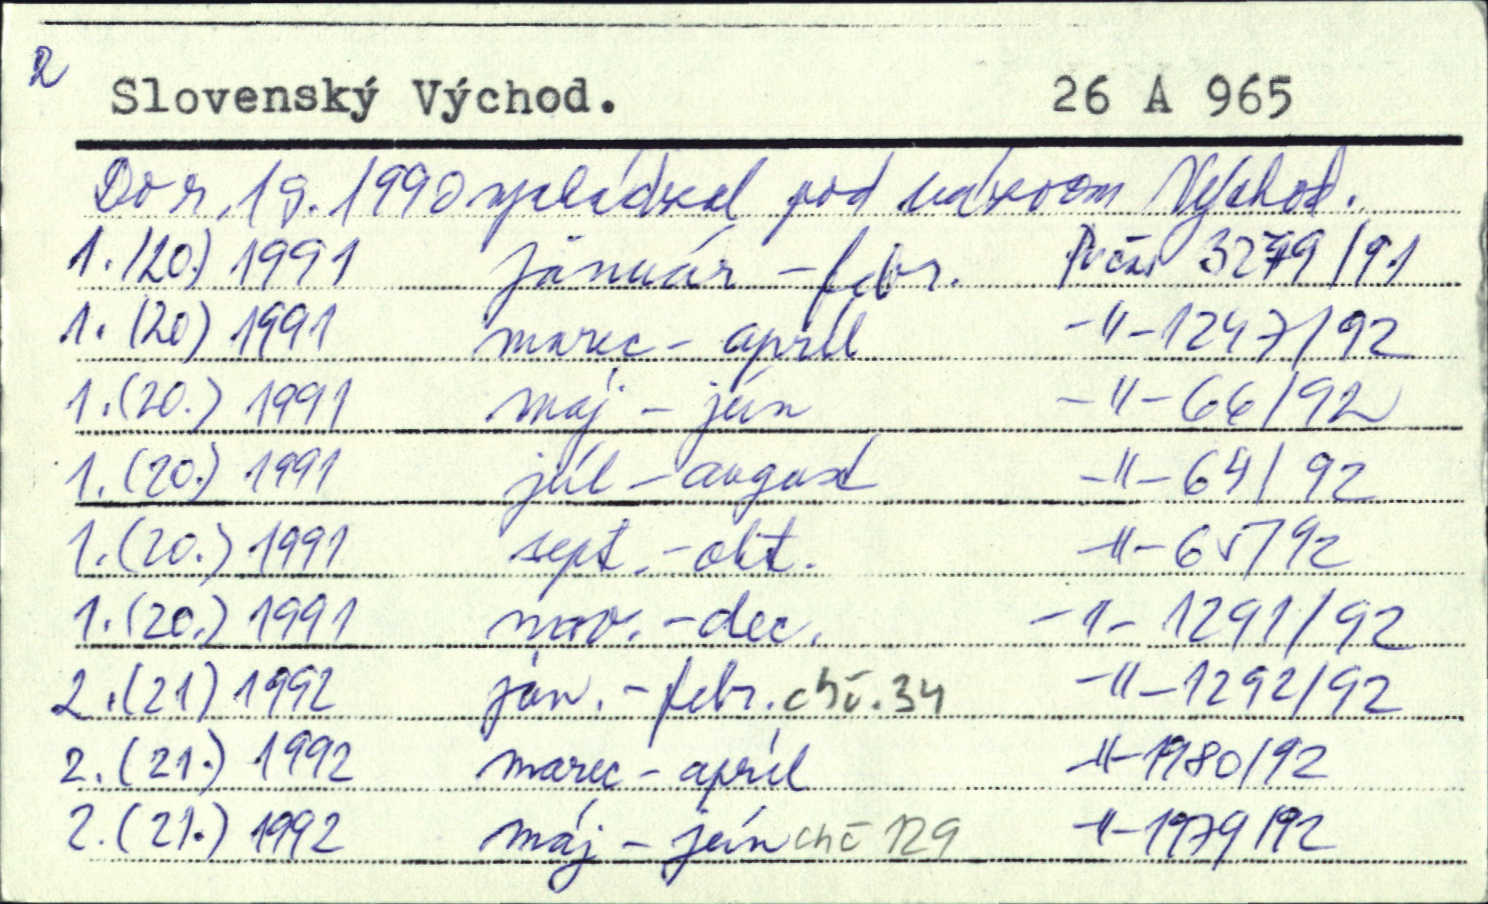 2
Slovenský Východ. 26 A 965
Do r. 19. 1990 vychádzal pod názvom Východ.
1. (20.) 1991 január - febr. Prčas 3279/91
1. (20) 1991 marec - apríl -"- 1247/92
1. (20.) 1991 máj - jún -"- 66/92
1. (20.) 1991 júl - august -"- 64/92
1. (20.) 1991 sept. - okt. -"- 65/92
1. (20.) 1991 nov. - dec. -"- 1291/92
2. (21) 1992 jan. - febr. chč. 34 -"- 1292/92
2. (21.) 1992 marec - apríl -"- 1980/92
2. (21.) 1992 máj - jún chč 129 -"- 1979/92